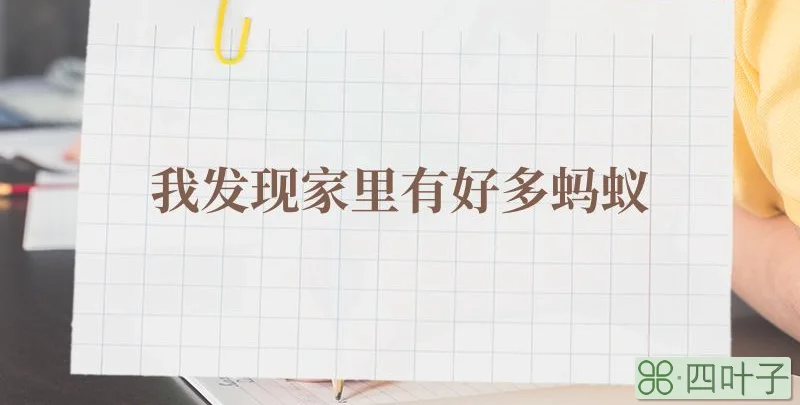 我发现家里有好多蚂蚁
四叶子